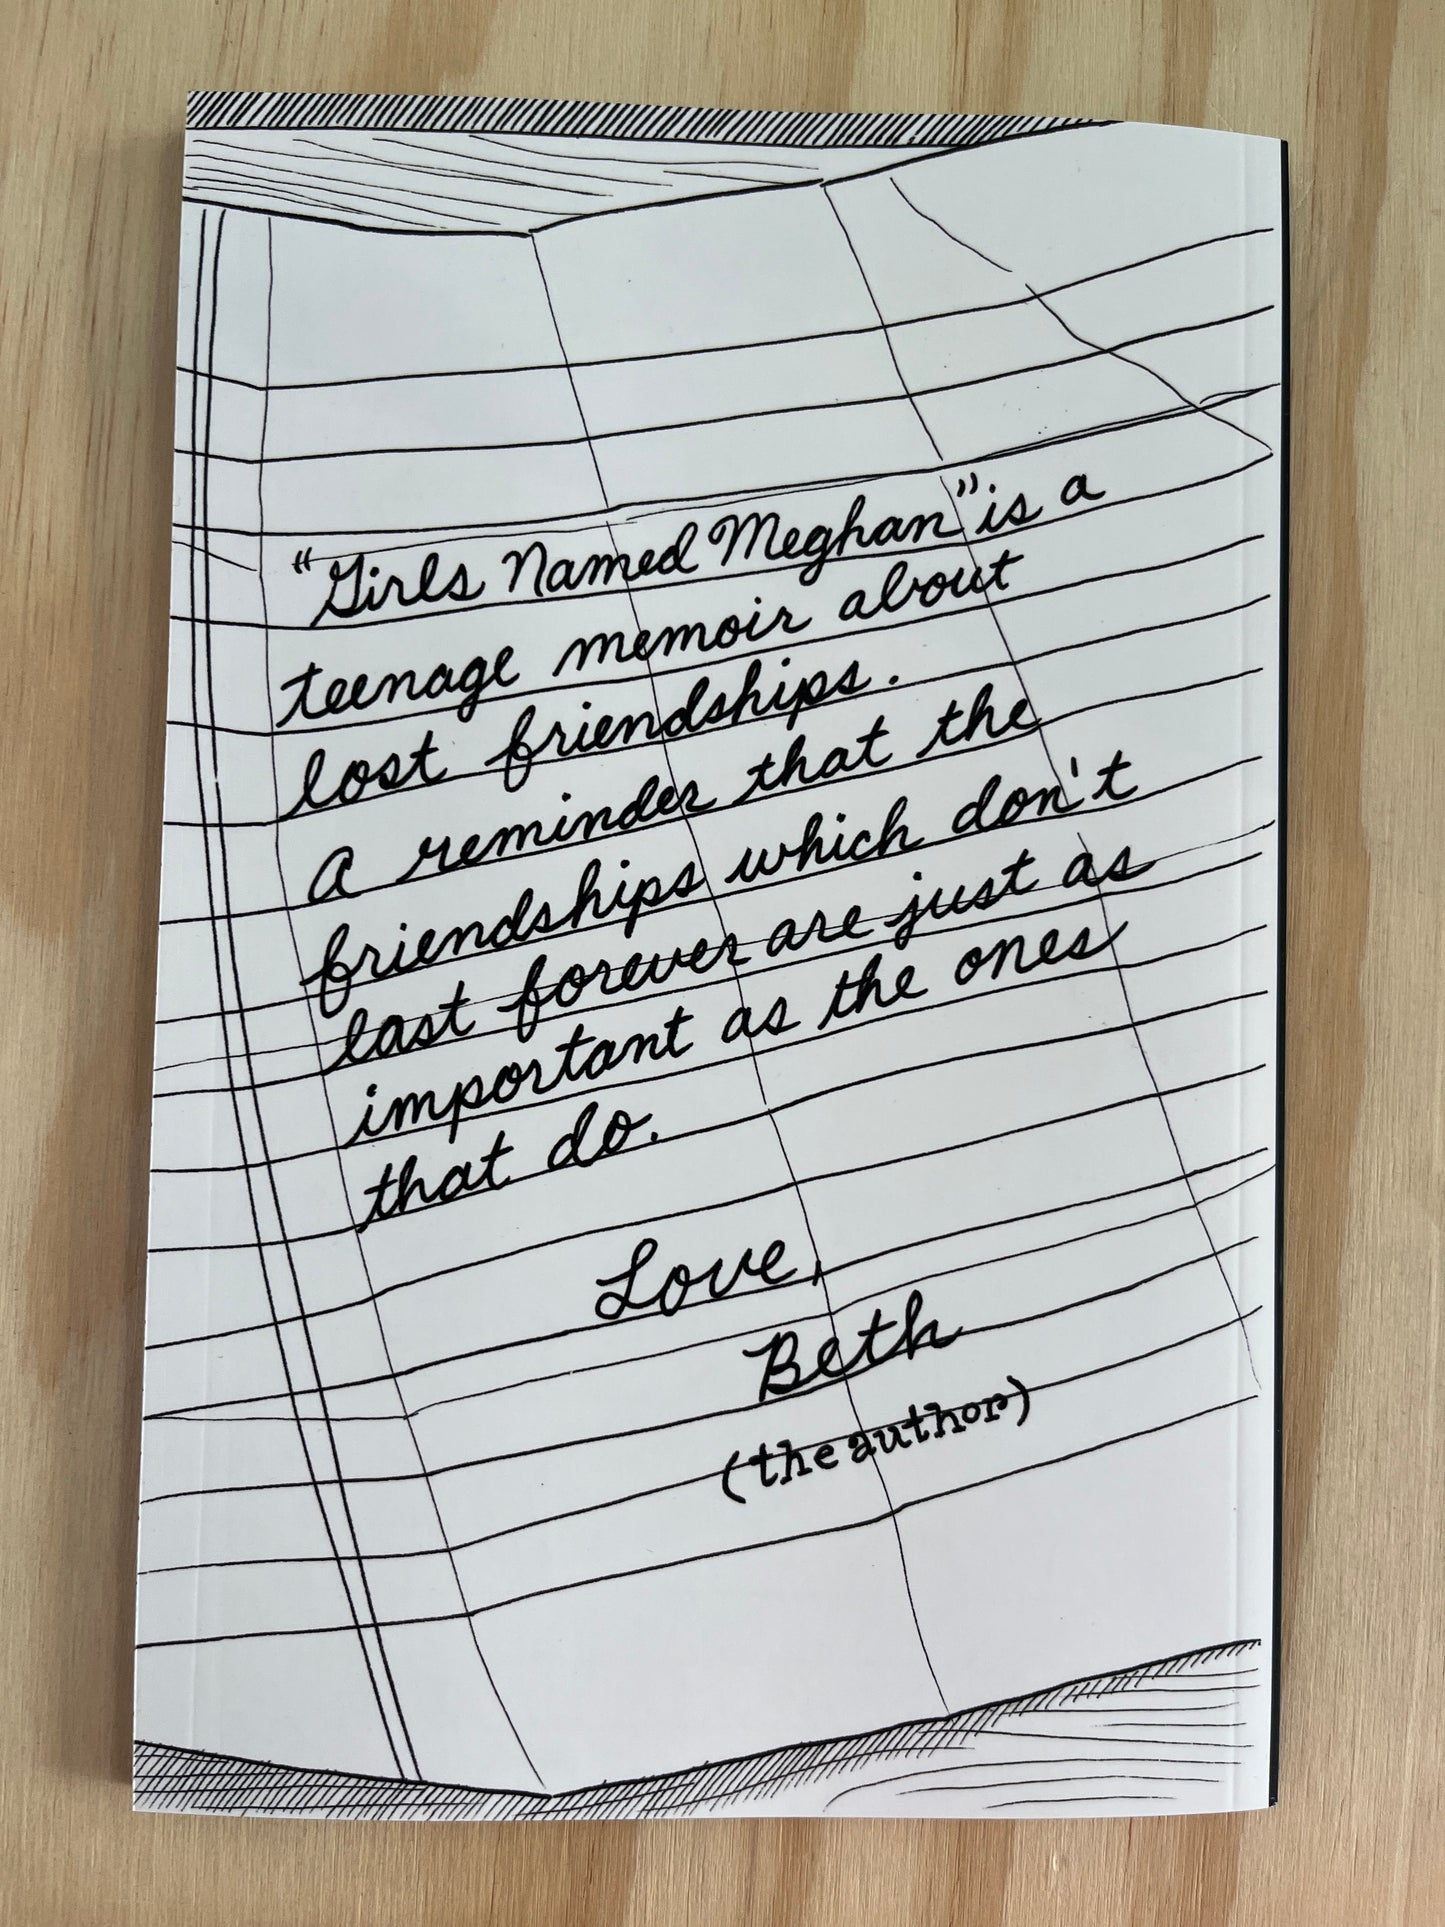 "Girls Named Meghan" is a
teenage memoir about
lost friendships.
A reminder that the
friendships which don't
last forever are just as
important as the ones
that do.
Love,
Beth
(the author)